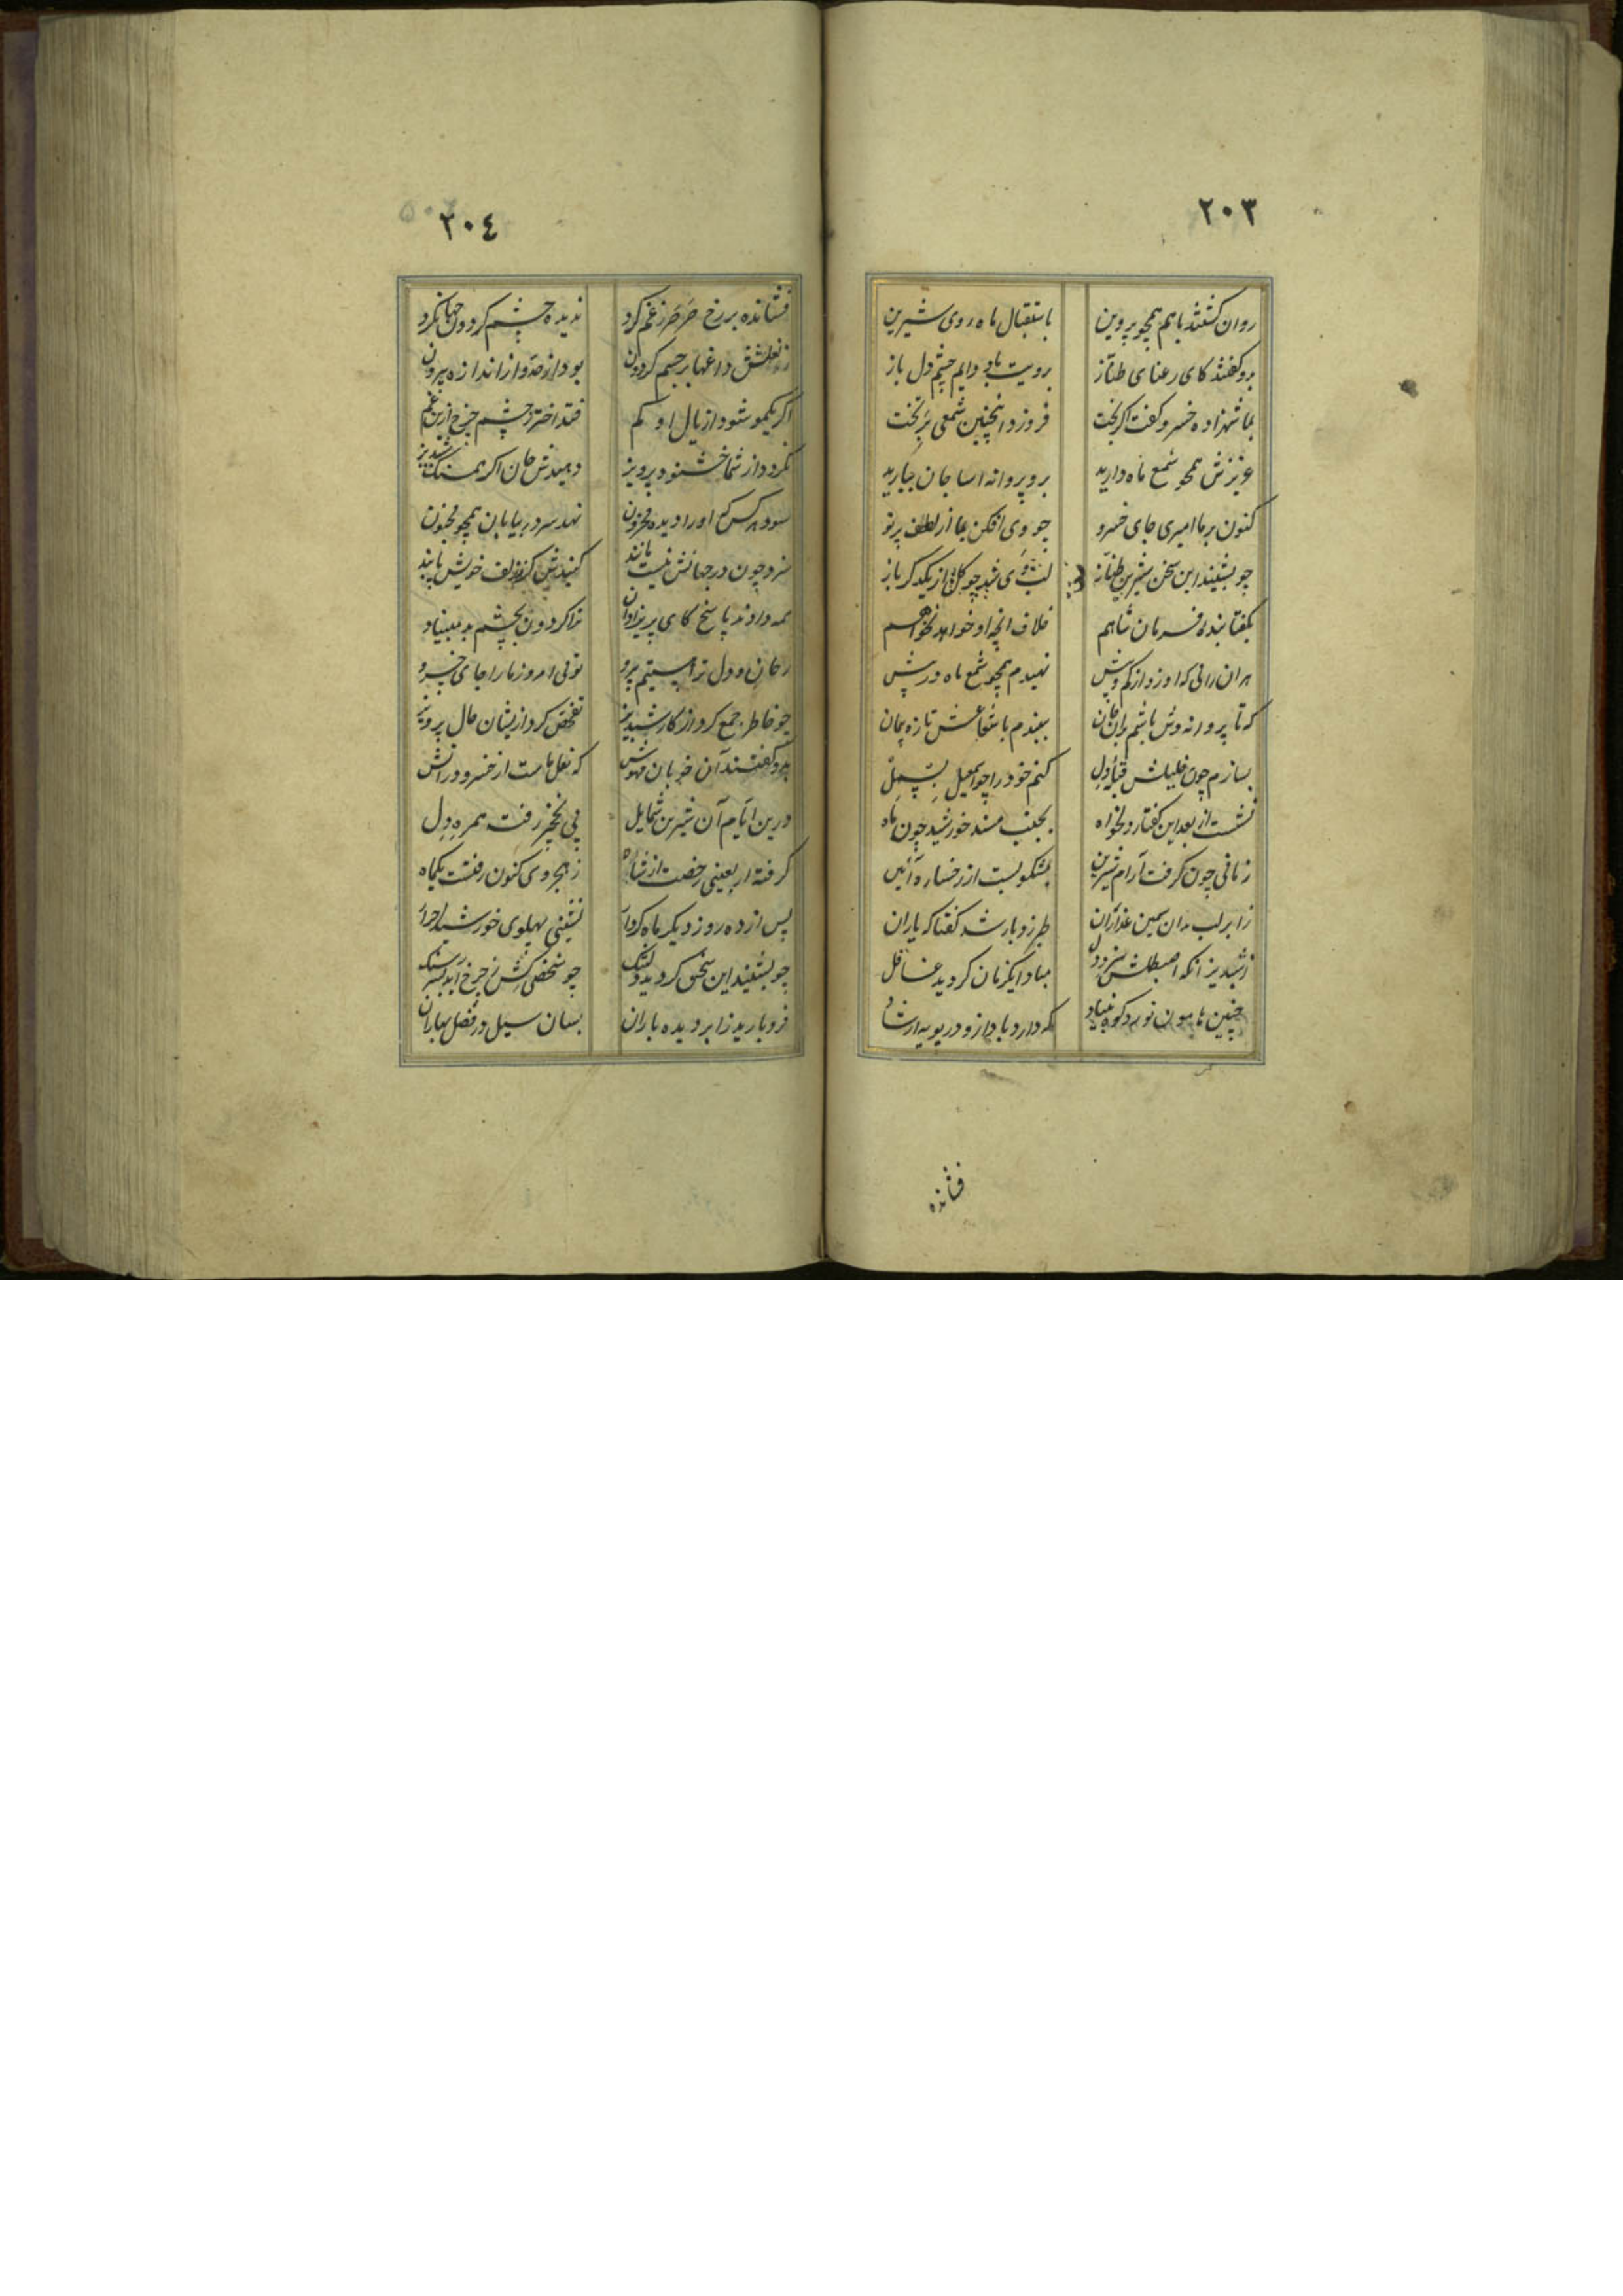 ۲۰۳
روان گشتند باهم همچو پروین باستقبال ماه روی شیرین
بدو گفتند کای رعنای طناز برویت باد دایم چشم دل باز
بما شهزاده خسرو گفت اگر بخت فروزد اینچنین شمعی بر تخت
عزیزش همچو شمع ماه دارید برو پروانه اسا جان سپارید
کنون بر ما امیری جای خسرو چو وی افکن بما از لطف پرتو
چو بشنید این سخن شیرین طناز لبش شد چو گل از یکدگر باز
بگفتا بنده فرمان شاهم خلاف انچه او خواهد نخواهم
هر ان رانی که او زد از کم و بیش نهیدم همچو شمع ماه در پیش
که تا پروانه وش باشم بران ببندم با شعاعش تازه پیمان
بسازم چون خلیلش قبله دل کنم خود را چو اسمعیل بسمل
نشست از بعد این گفتار دلخواه بجنب مسند خورشید چون ماه
زمانی چون گرفت آرام شیرین بمشکو بست از رخساره آئین
ز ابر لب بدان سیمین عذاران طبرزد بار شد گفتا که یاران
ز شبدیز آنکه اصطبلش سزد دل مبادا یکزمان گردید غافل
چنین هامون نورد کوه بنیاد که دارد باد ازو در پویه ارشاد
فشانده
۲۰۴
فشانده بر رخ صرصر ز غم گرد ندیده چشم گردون جهانگرد
ز نعلش داغها بر جسم گردون بود از حد و از اندازه بیرون
اگر یکمو شود از یال او کم فتد اختر ز چشم چرخ ازین غم
نگردد از شما خشنود پرویز دهیدش جان اگر همسنگ شبدیز
شود هر کس که او را دیده محزون نهد سر در بیابان همچو مجنون
سزد چون در جهانش نیست مانند کنیدش گر ز زلف خویش پابند
همه دادند پاسخ کای پریزاد ترا گردون بچشم بد مبیناد
ز جان و دل ترا هستیم پیرو توئی امروز ما را جای خسرو
چو خاطر جمع کرد از کار شبدیز تفحص کرد ازیشان حال پرویز
بدو گفتند آن خوبان مهوش که نعل ماست از خسرو در اتش
درین ایام آن شیرین شمایل پی نخجیر رفت همره دل
گرفته اربعینی رخصت از شاه ز هجر وی کنون رفتست یکماه
پس از ده روز دیگر ماه کردار نشینی پهلوی خورشید
چو بشنید این سخن گردید دلتنگ چو شخصی کش ز چرخ آید بسر سنگ
فرو بارید ز ابر دیده باران بسان سیل در فصل بهاران